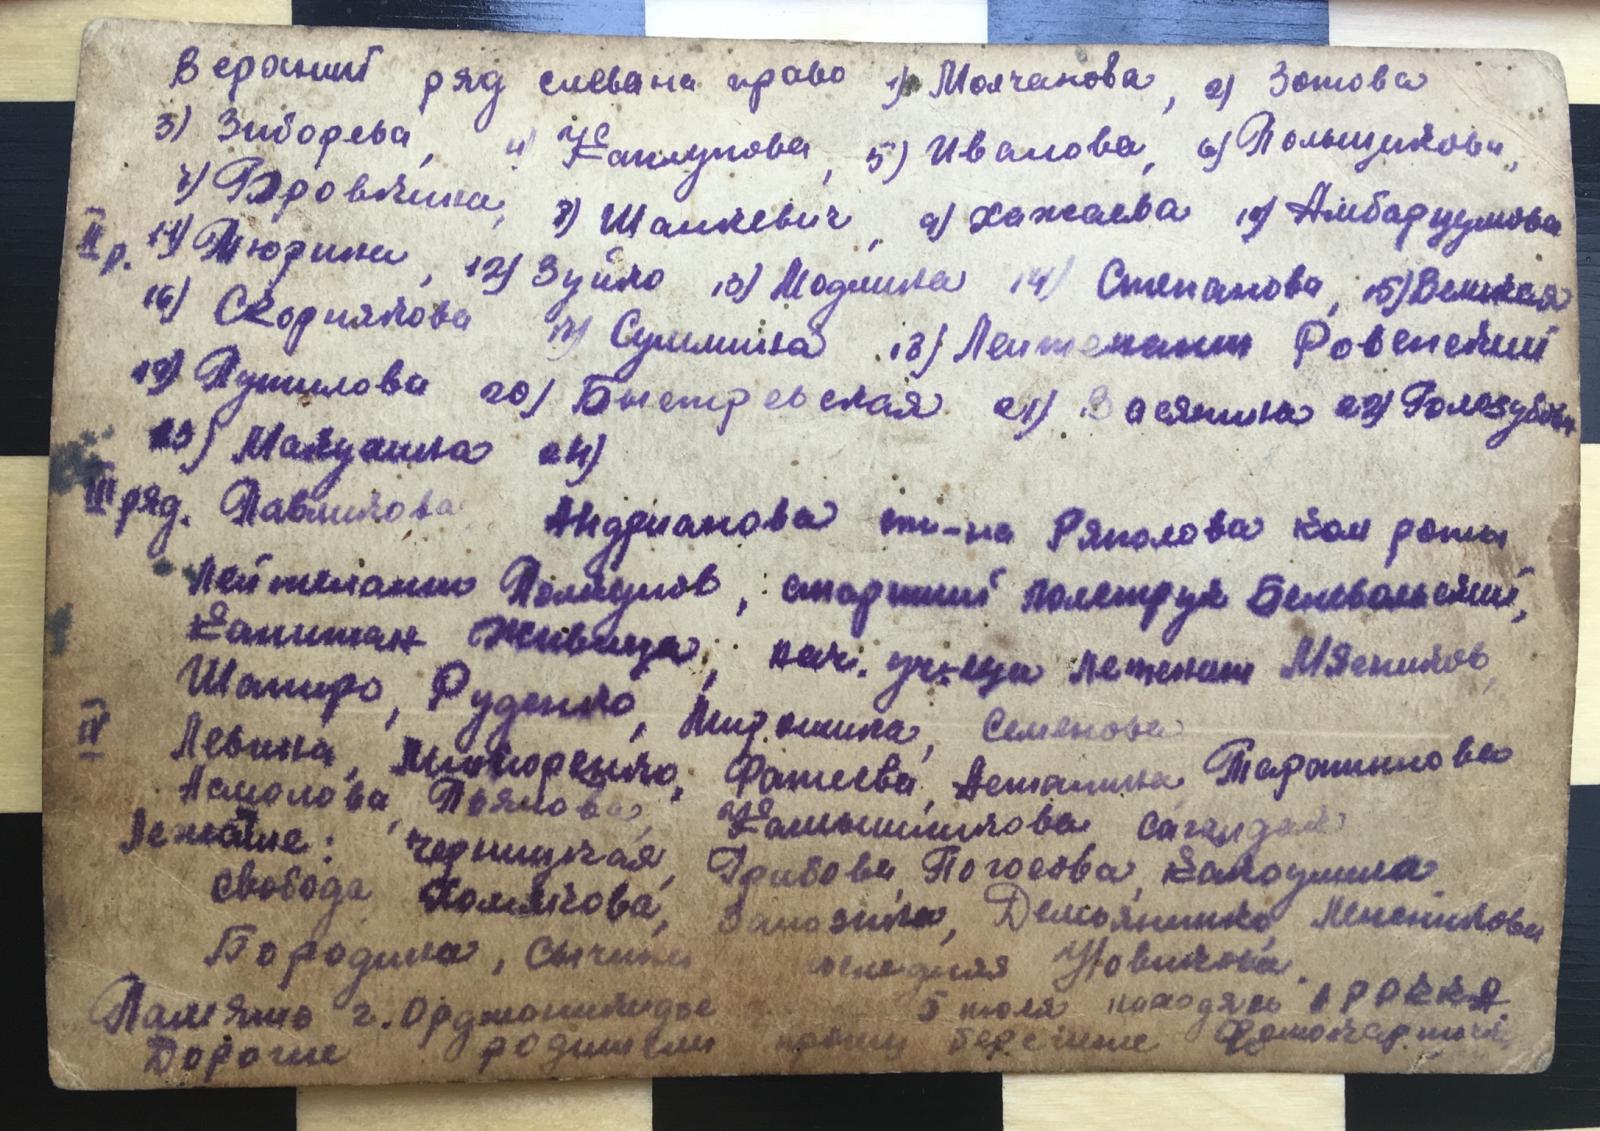 Верхний ряд слева на право 1) Молчанова, 2) Зотова
3) Зиборева, 4) Каплунова, 5) Иванова, 6) Польщикова,
7) Бровкина, 8) Шанкевич, 9) Хажаева 10) Амбарцумова
II р. 11) Тюрина, 12) Зуйко 13) Модлина 14) Степанова, 15) Великая
16) Скорнякова 17) Сушкина 18) Лейтенант Ровенский
19) Путилова 20) Быстревская 21) Засялина 22) Голозубова
23) Макушина 24)
III ряд. Павликова Андрианова ст-на Ряполова ком роты
лейтенант Полкунов, старший политрук Бельвольский,
капитан Живица, нач. уч-ща летенант Мясников,
Шапиро, Руденко, Мирошина, Семенова
IV Левина, Фатеева, Асташина Таратинова
Асмолова, Пьянова, Камышникова
Лежащие: Черницкая, Грибова, Погосова,
Свобода Хомякова, Занозина, Демьяненко Менсикова
Бородина, Сычина последняя Новикова.
Память г. Орджоникидзе 5 июля находясь в РОККА
Дорогие родители прошу берегите фотокарточки